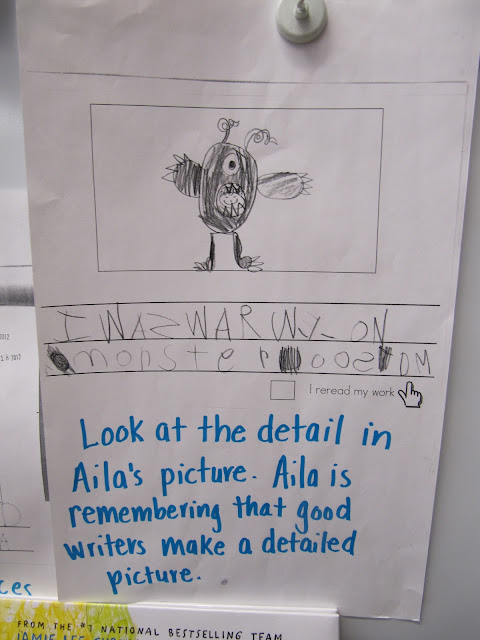 I WAZ WAR WY_ ON
monster OOOZ DM
I reread my work
Look at the detail in
Aila's picture. Aila is
remembering that good
writers make a detailed
picture.
2012
8 2012
cer
FROM THE #1 NATIONAL BESTSELLING TEAM